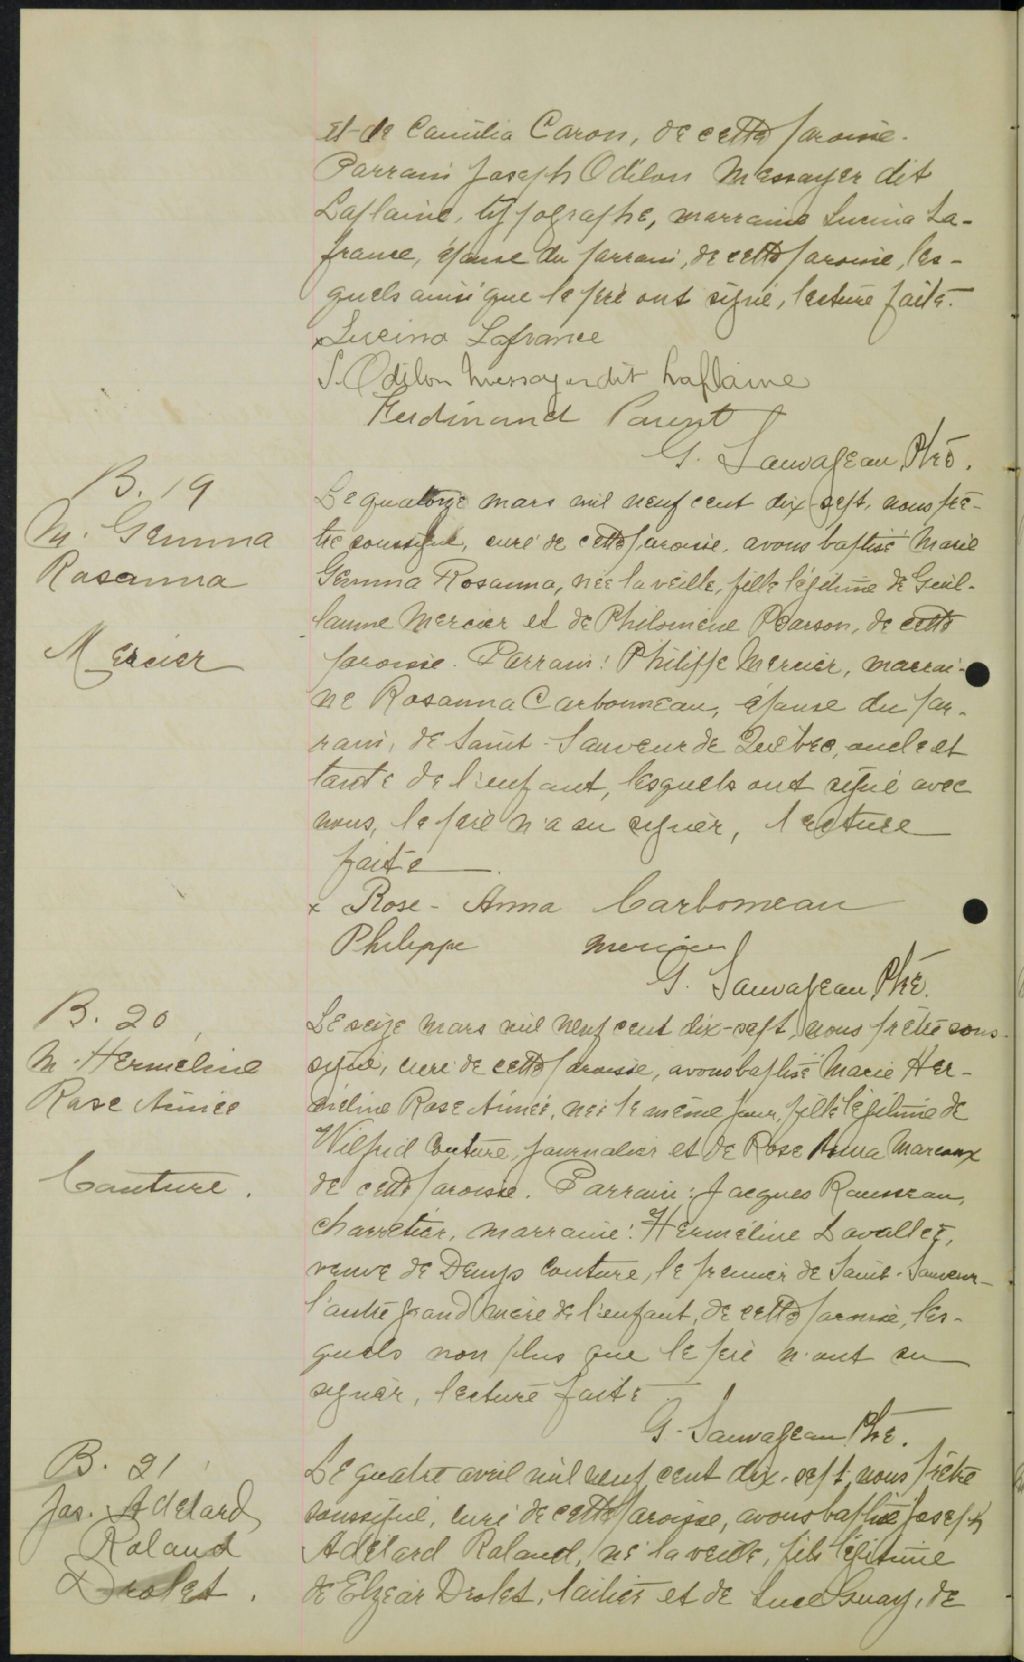 et de Camilia Caron, de cette paroisse.
Parrain Joseph Odilon Messayer dit
Laplaine, typographe, marraine Lucina La-
france, épouse du parrain, de cette paroisse, les-
quels ainsi que le père ont signé, lecture faite.
x Lucina Lafrance
J. Odilon Messayer dit Laplaine
Ferdinand Parent
G. Sauvageau, Ptre.
B. 19
M. Gemma
Rosanna
Mercier
Le quatorze mars mil neuf cent dix-sept, nous prê-
tre soussigné, curé de cette paroisse, avons baptisé Marie
Gemma Rosanna, née la veille, fille légitime de Guil-
laume Mercier et de Philomène Pearson, de cette
paroisse. Parrain: Philippe Mercier, marrai-
ne Rosanna Carbonneau, épouse du par-
rain, de Saint-Sauveur de Québec, oncle et
tante de l'enfant, lesquels ont signé avec
nous, le père n'a su signer, lecture
faite
x Rose-Anna Carbonneau
Philippe Mercier
G. Sauvageau, Ptre.
B. 20
M. Herméline
Rose Aimée
Couture.
Le seize mars mil neuf cent dix-sept, nous prêtre sous-
signé, curé de cette paroisse, avons baptisé Marie Her-
méline Rose Aimée, née le même jour, fille légitime de
Wilfrid Couture, journalier et de Rose Anna Marcoux
de cette paroisse. Parrain: Jacques Rousseau,
charretier, marraine: Herméline Lavallée,
veuve de Denys Couture, le premier de Saint-Sauveur
l'autre grand'mère de l'enfant, de cette paroisse, les-
quels non plus que le père n'ont su
signer, lecture faite.
G. Sauvageau Ptre.
B. 21
Jos. Adélard
Roland
Drolet.
Le quatre avril mil neuf cent dix-sept, nous prêtre
soussigné, curé de cette paroisse, avons baptisé Joseph
Adélard Roland, né la veille, fils légitime
de Elzéar Drolet, laitier et de Luce Guay, de